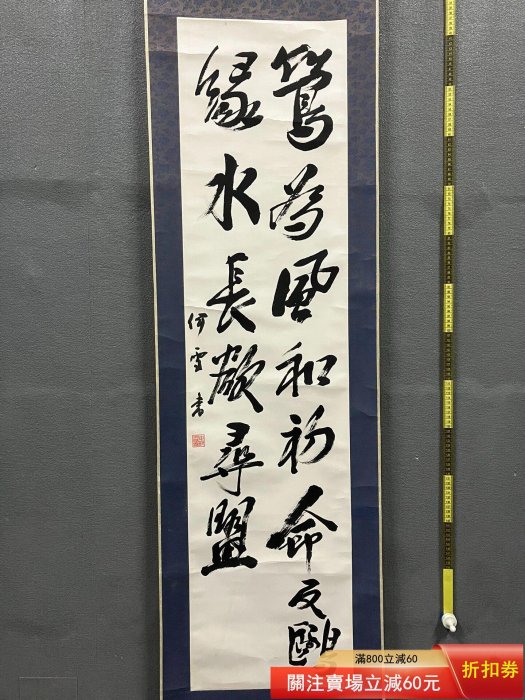 鶯為風和初命友鷗
緣水長欲尋盟
何雪書
滿800立減60
關注賣場立減60元
折扣券